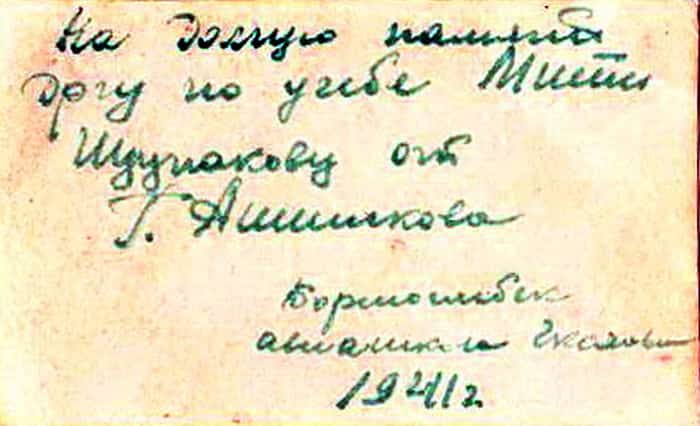 На долгую память
другу по учебе Мити
Щупакову от
Г. Ашишкова
Борисоглебск
авиашкола Чкалова
1941 г